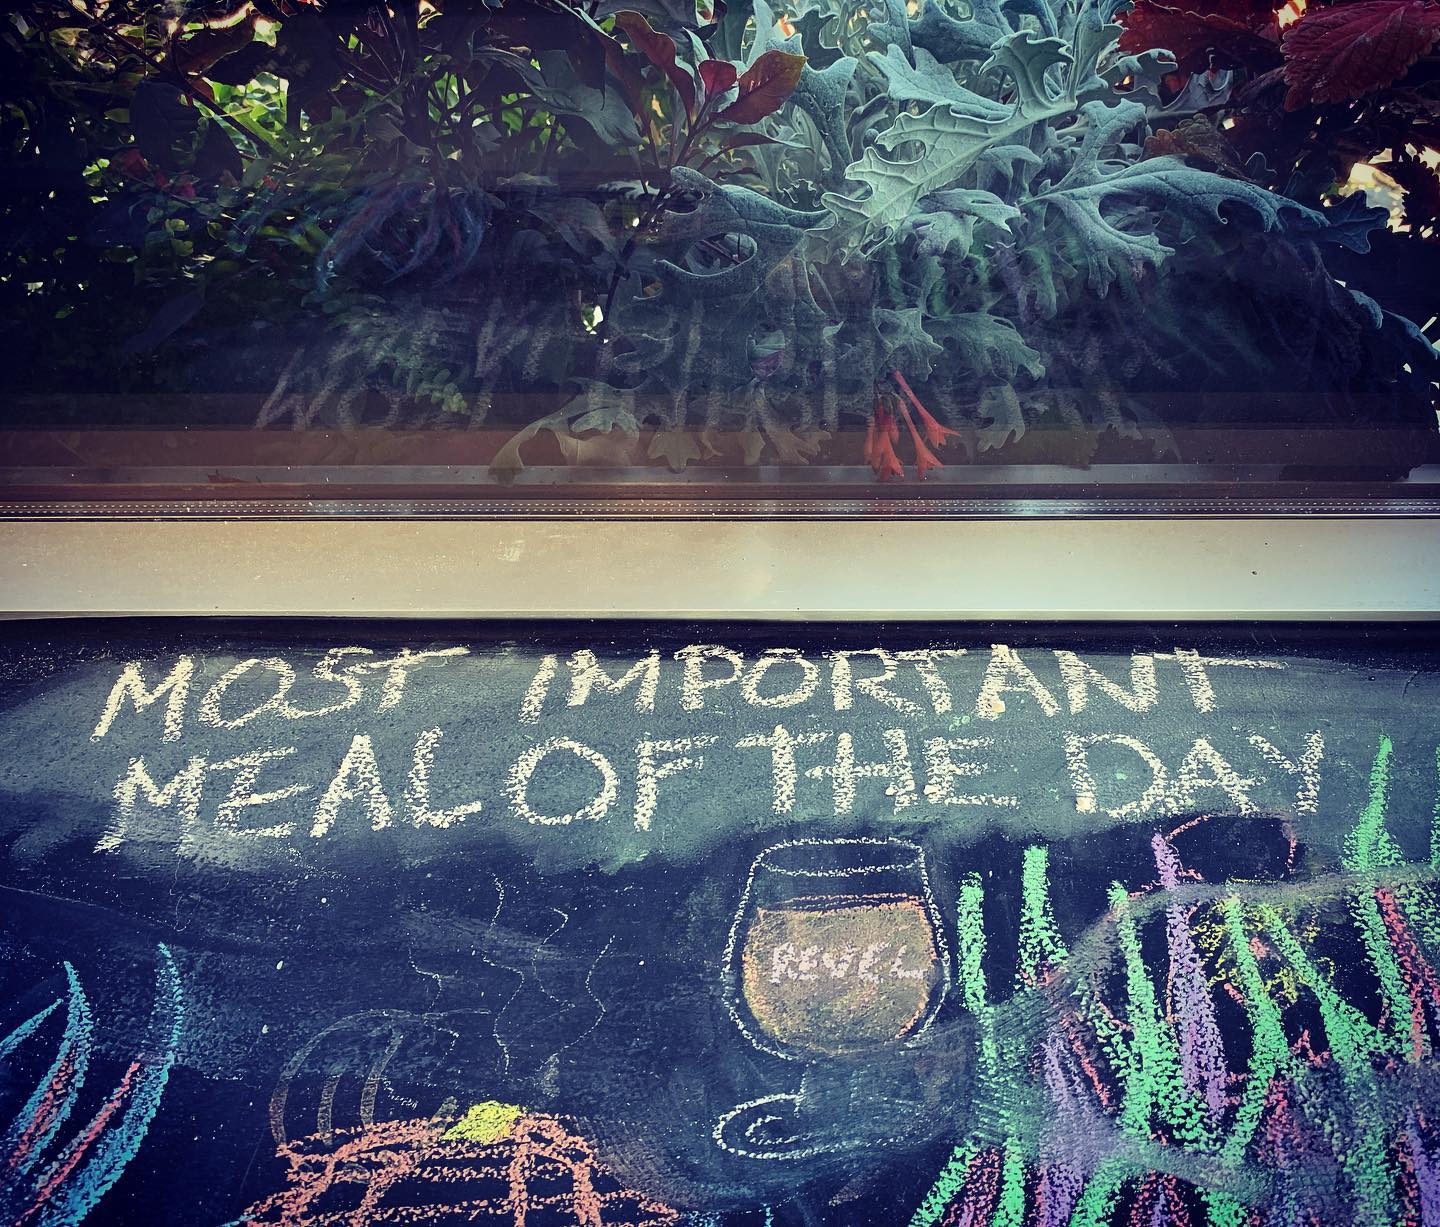 MOST IMPORTANT
MEAL OF THE DAY
REVEL